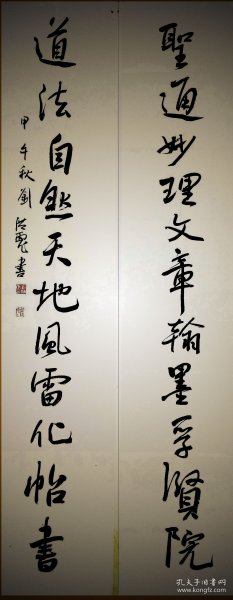 聖通妙理文章翰墨孚賢院
道法自然天地風雷化帖書
甲午秋劉書
孔夫子旧书网
www.kongfz.com